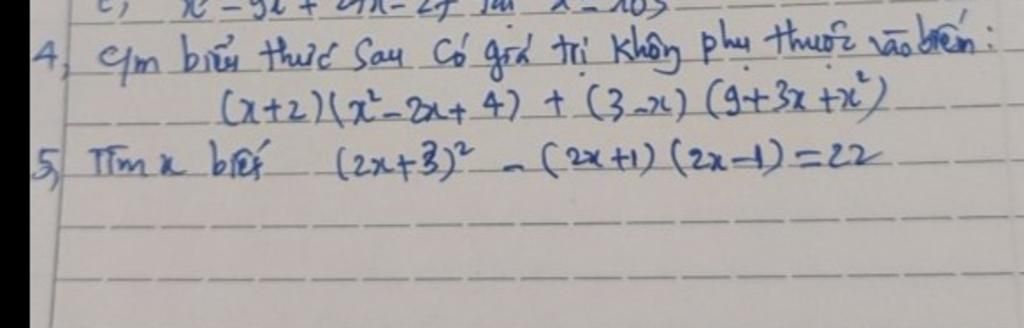 4, c/m biểu thức sau có giá trị không phụ thuộc vào biến:
(x+2)(x² - 2x + 4) + (3 - x) (9 + 3x + x²)
5, Tìm x biết (2x+3)² - (2x+1) (2x-1) = 22